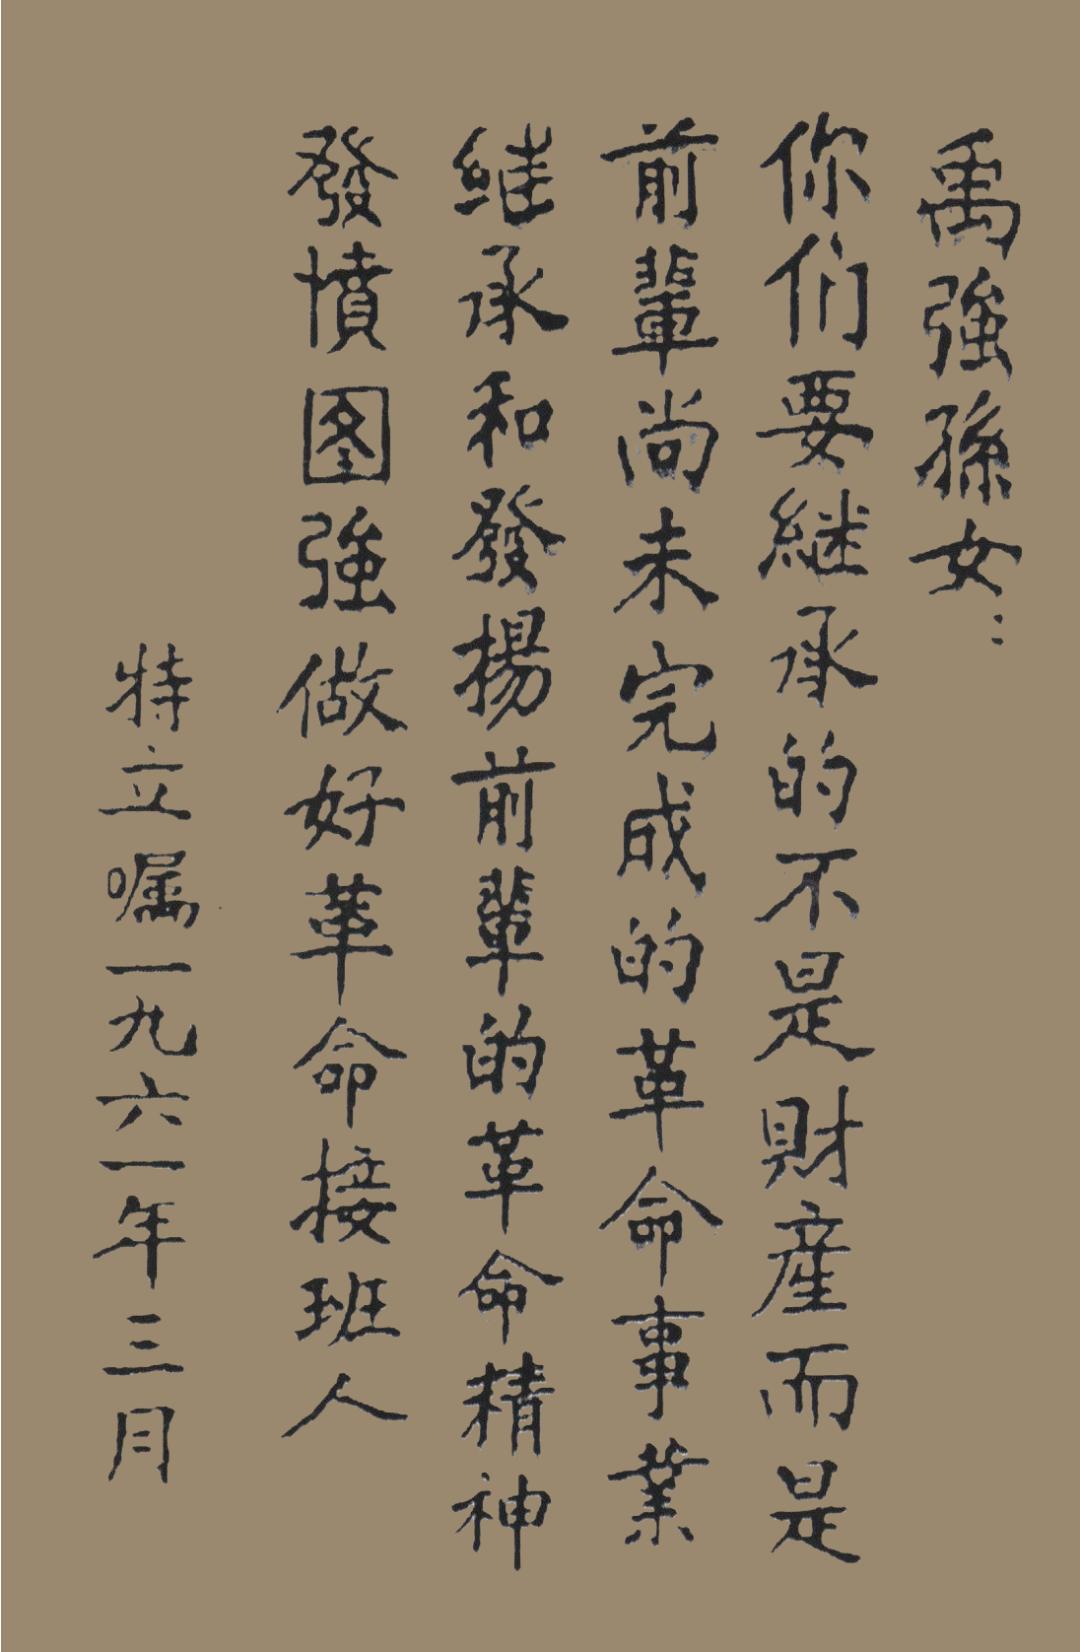 禹強孫女：
你们要継承的不是財産而是
前輩尚未完成的革命事業
継承和發揚前輩的革命精神
發憤图強做好革命接班人
特立嘱一九六一年三月